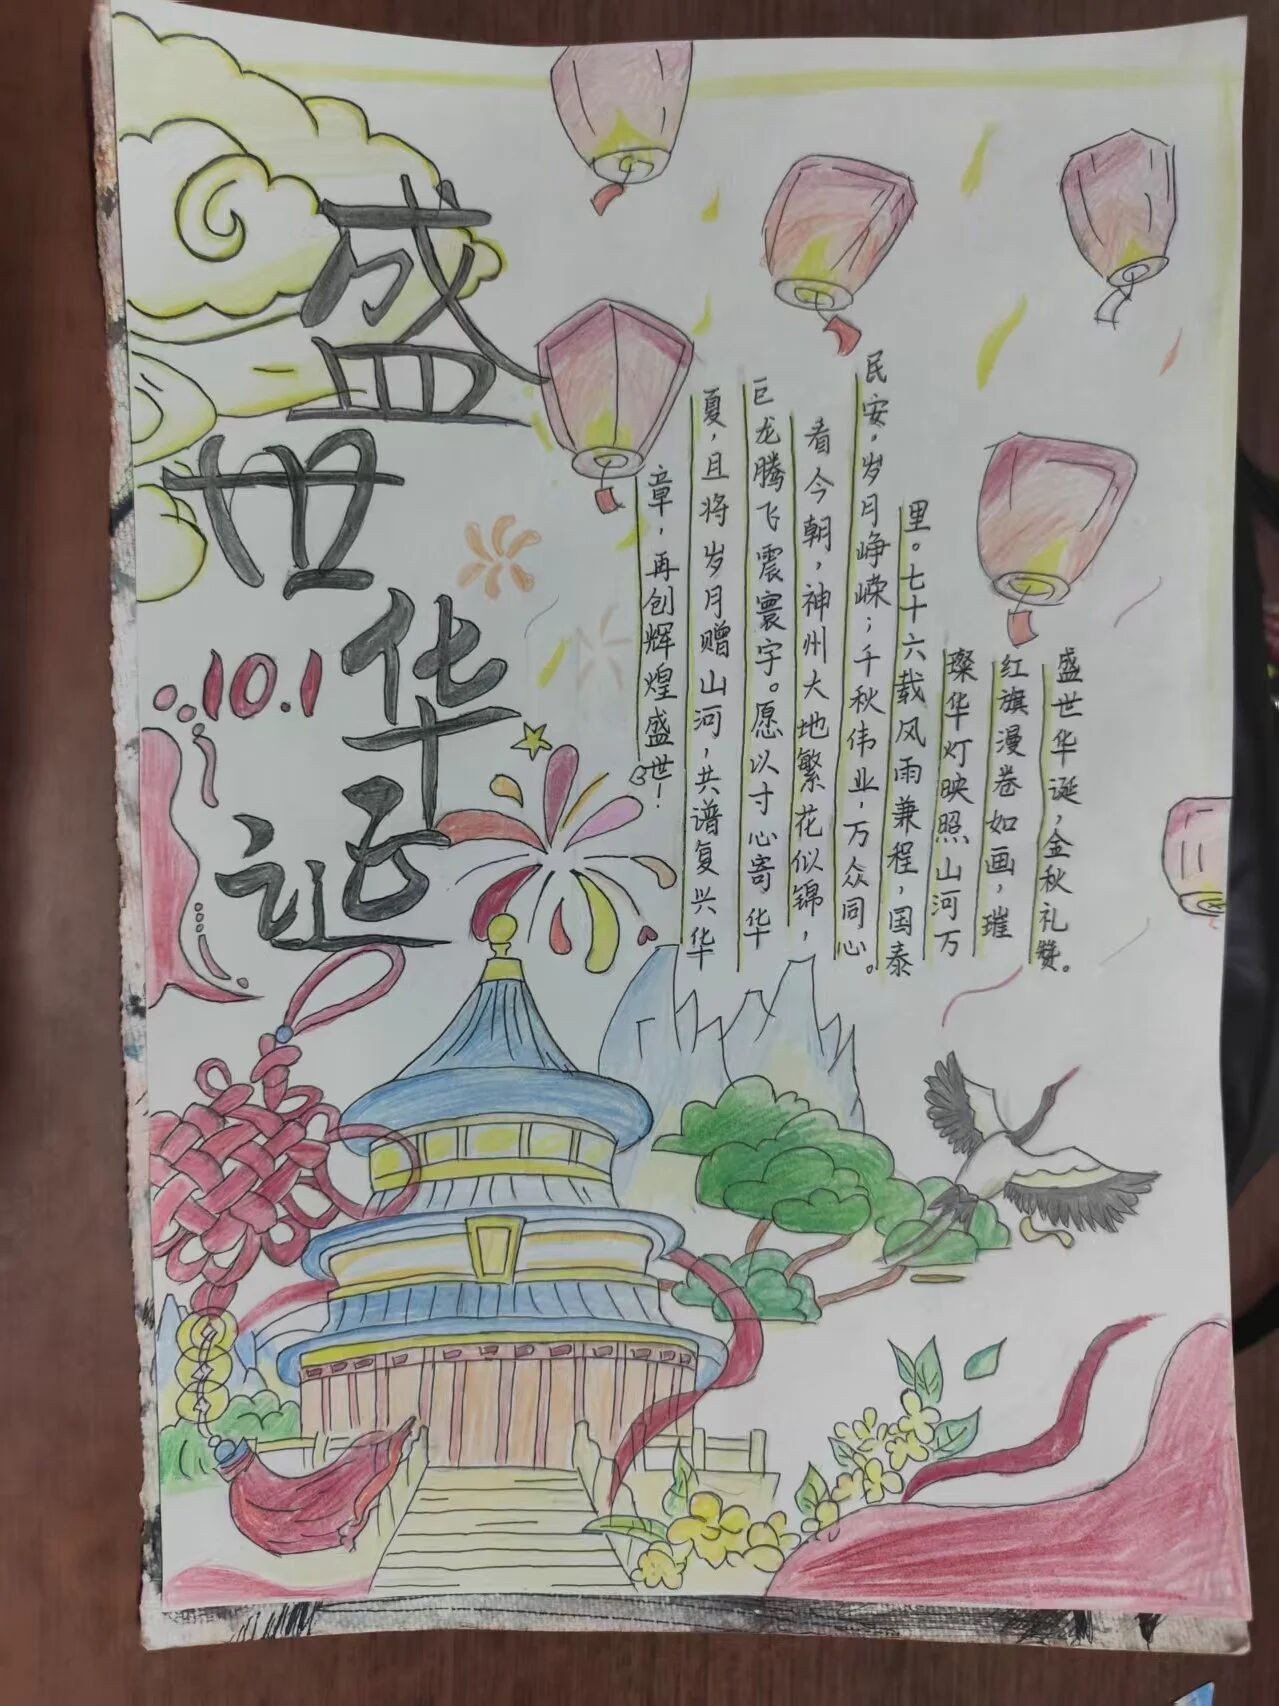 盛世华诞
10.1
盛世华诞，金秋礼赞。
红旗漫卷如画，璀
璨华灯映照山河万
里。七十六载风雨兼程，国泰
民安，岁月峥嵘；千秋伟业，万众同心。
看今朝，神州大地繁花似锦，
巨龙腾飞震寰宇。愿以寸心寄华
夏，且将岁月赠山河，共谱复兴华
章，再创辉煌盛世！